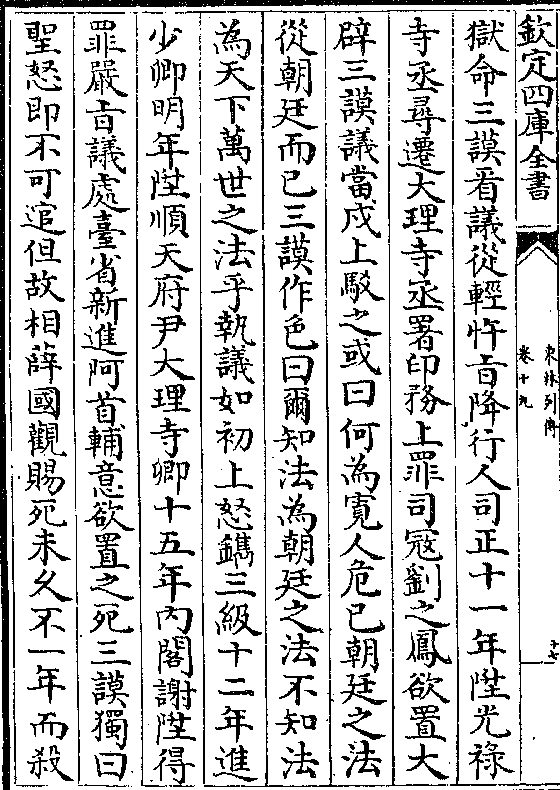 欽定四庫全書
東林列傳
卷十九
十七
獄命三謨看議從輕忤㫖降行人司正十一年陞光祿
寺丞尋遷大理寺丞署印務上罪司冦劉之鳳欲置大
辟三謨議當戍上駁之或曰何為寛人危已朝廷之法
從朝廷而已三謨作色曰爾知法為朝廷之法不知法
為天下萬世之法乎執議如初上怒鐫三級十二年進
少卿明年陞順天府尹大理寺卿十五年內閣謝陞得
罪嚴㫖議處臺省新進阿首輔意欲置之死三謨獨曰
聖怒即不可逭但故相薛國觀賜死未乆不一年而殺